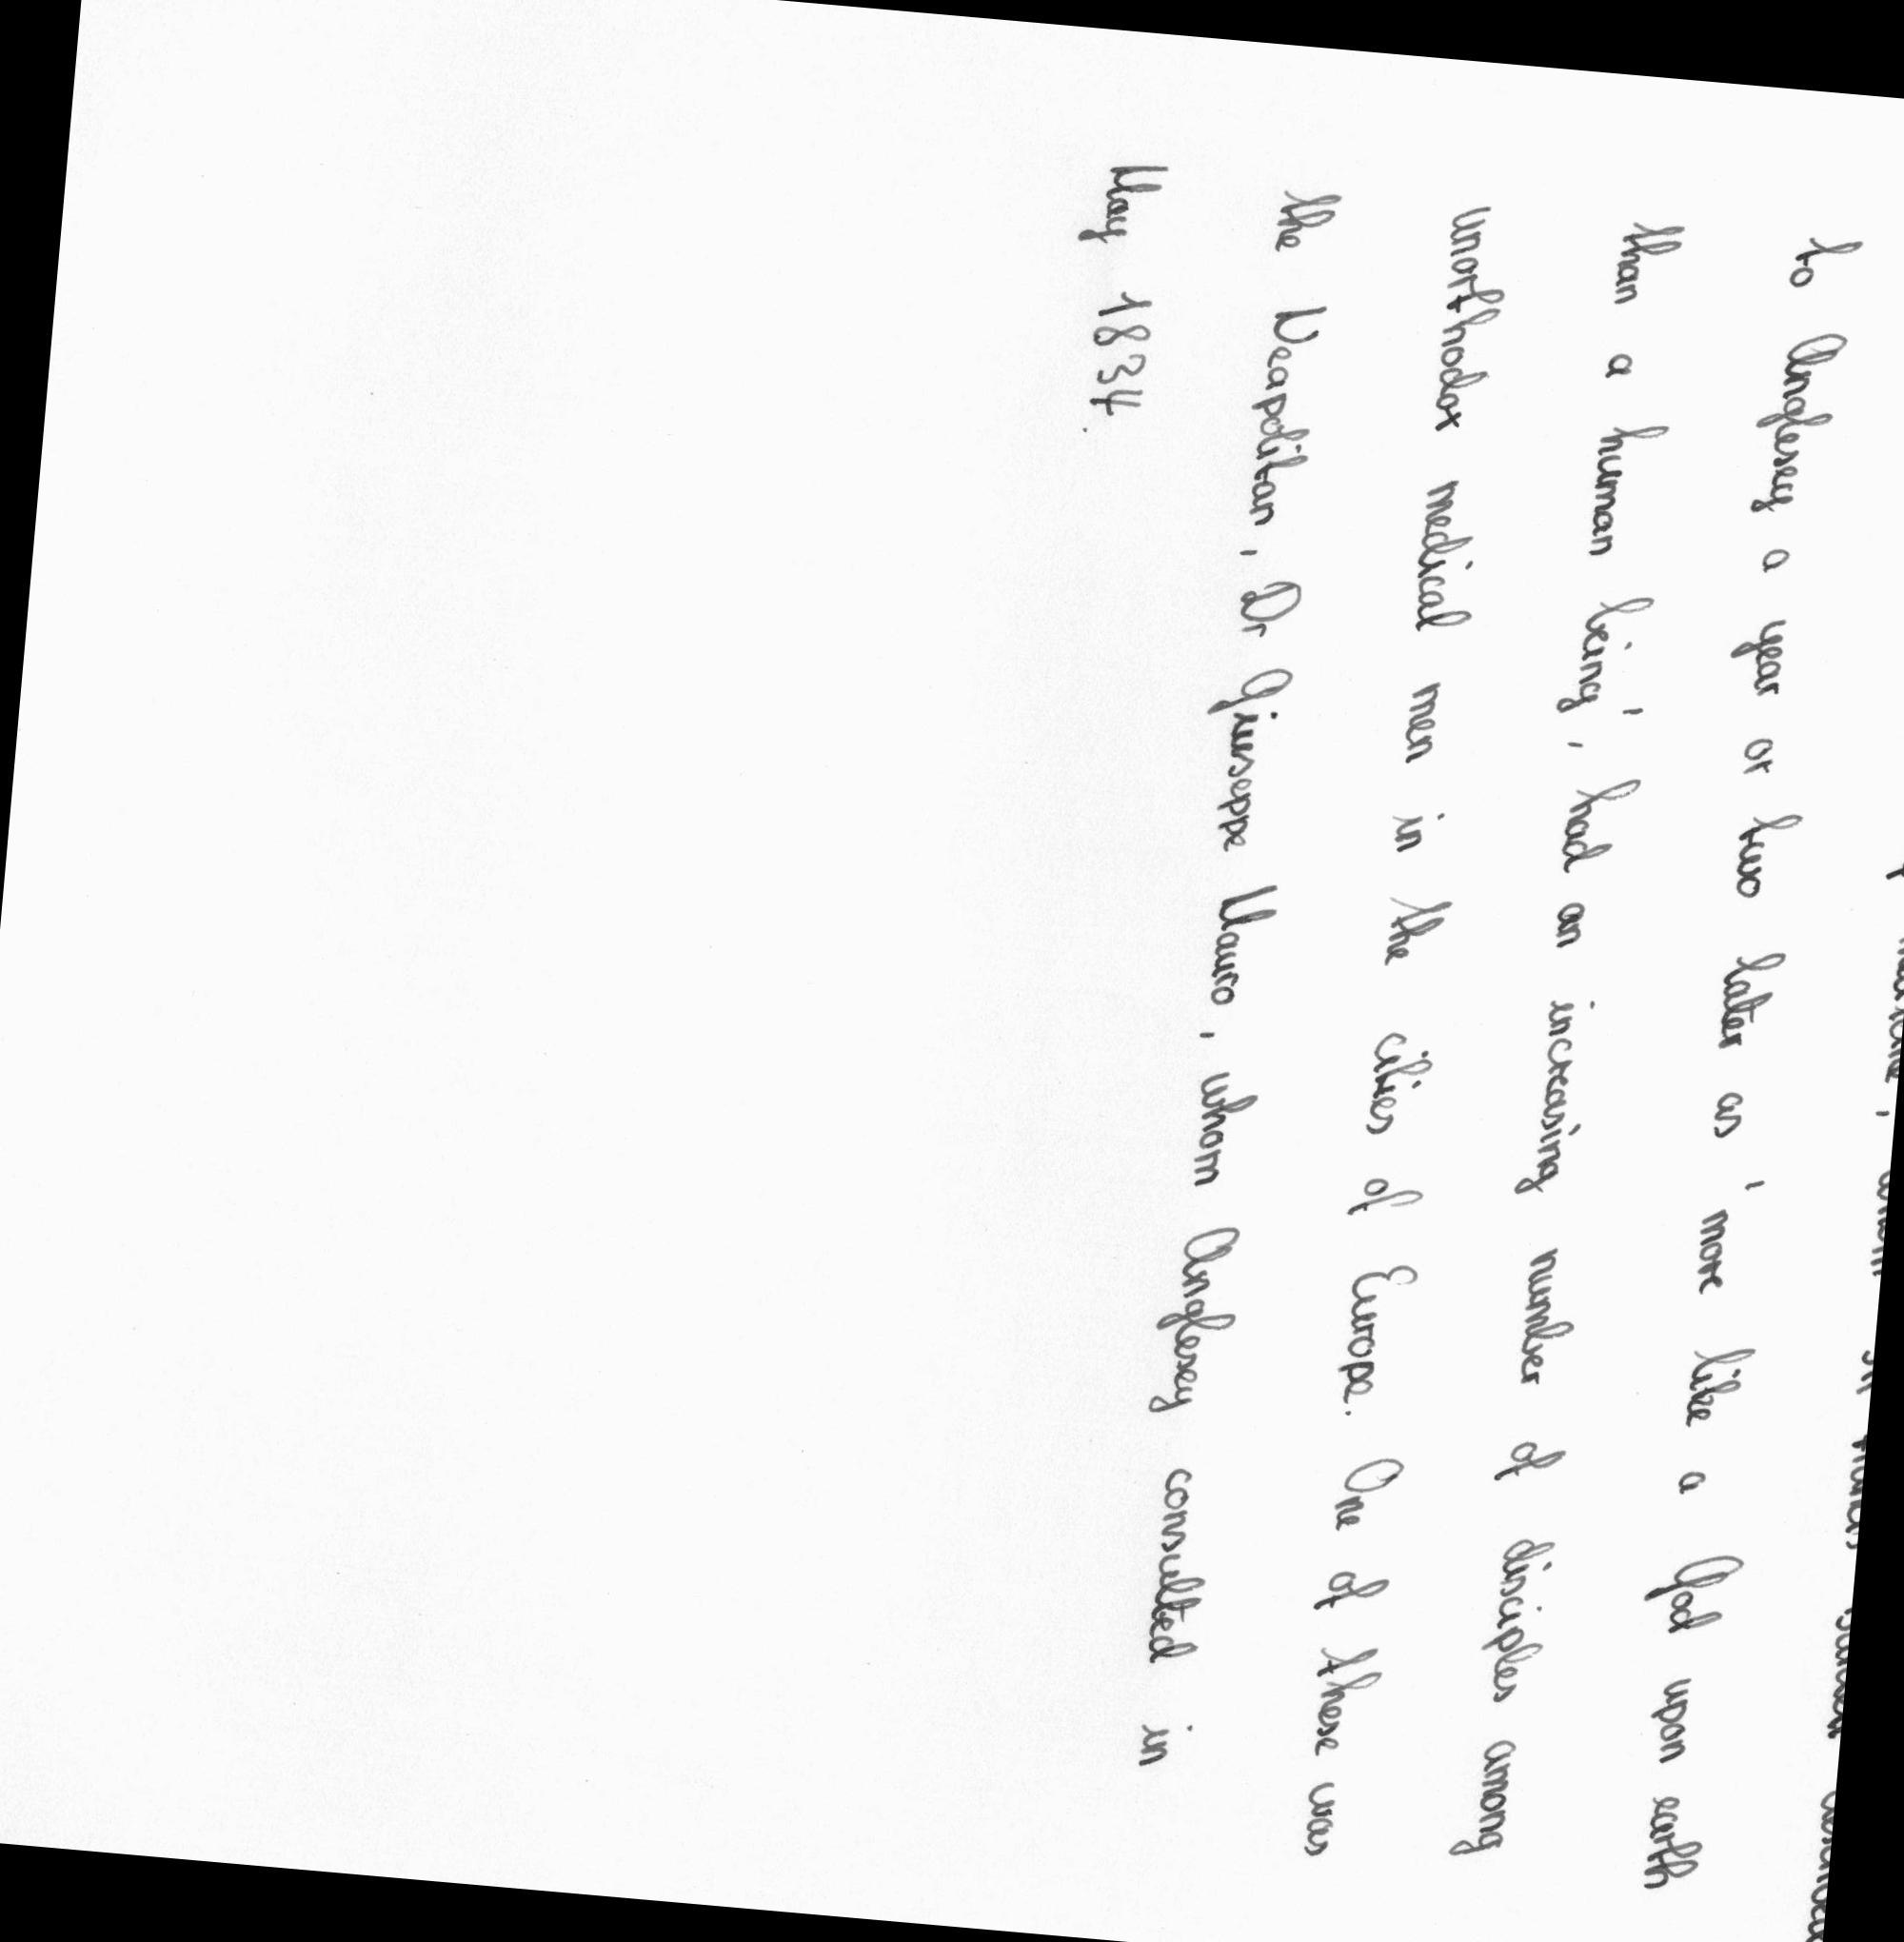 to Anglesey a year or two later as ' more like a God upon earth
than a human being ' , had an increasing number of disciples among
unorthodox medical men in the cities of Europe. One of these was
the Neapolitan , Dr Giuseppe Mauro , whom Anglesey consulted in
May 1834 .